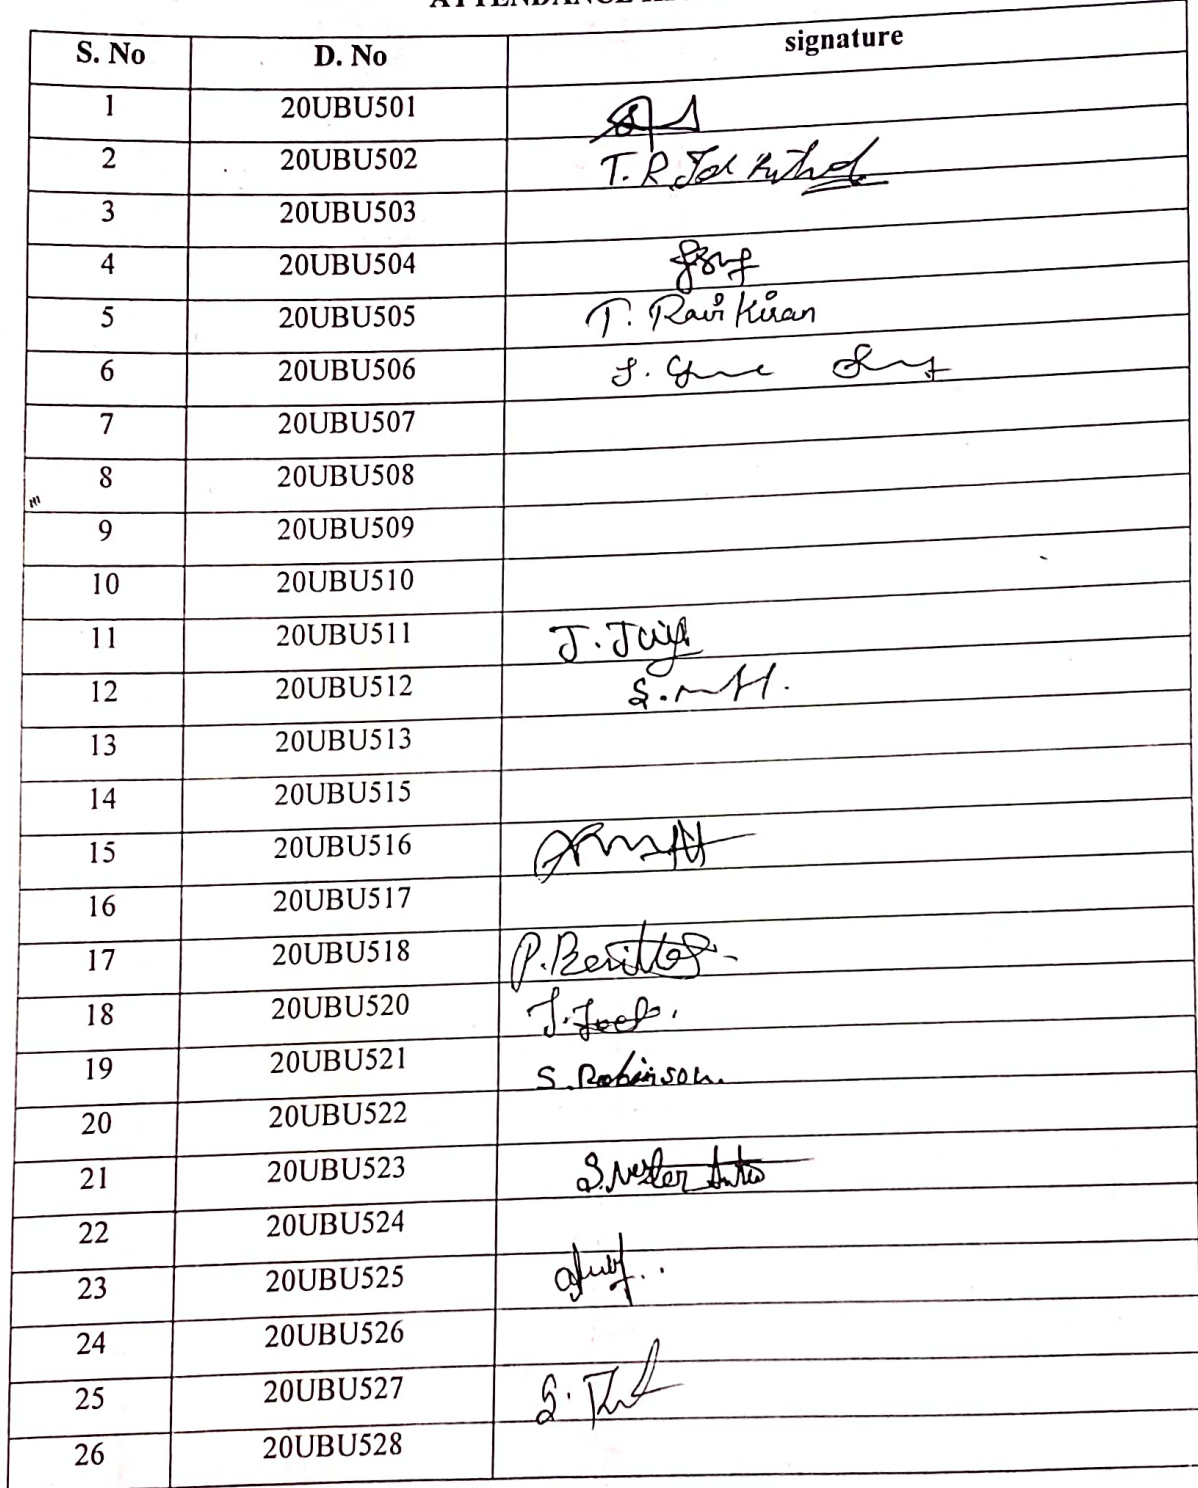 S. No D. No signature
1 20UBU501
2 20UBU502 T. R.
3 20UBU503
4 20UBU504
5 20UBU505 T. Ravi Kiran
6 20UBU506
7 20UBU507
8 20UBU508
9 20UBU509
10 20UBU510
11 20UBU511 J.
12 20UBU512 S.
13 20UBU513
14 20UBU515
15 20UBU516
16 20UBU517
17 20UBU518 P.
18 20UBU520 J. Joel.
19 20UBU521 S. Robinson.
20 20UBU522
21 20UBU523 S. Nester Anto
22 20UBU524
23 20UBU525
24 20UBU526
25 20UBU527 S.
26 20UBU528